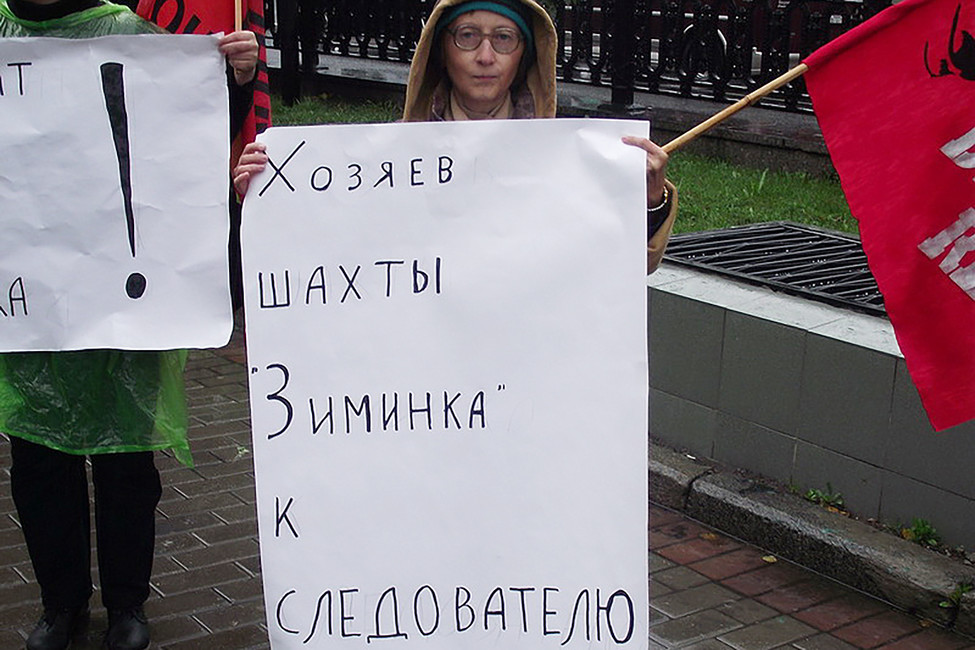 Хозяев
шахты
"Зиминка"
к
следователю
!